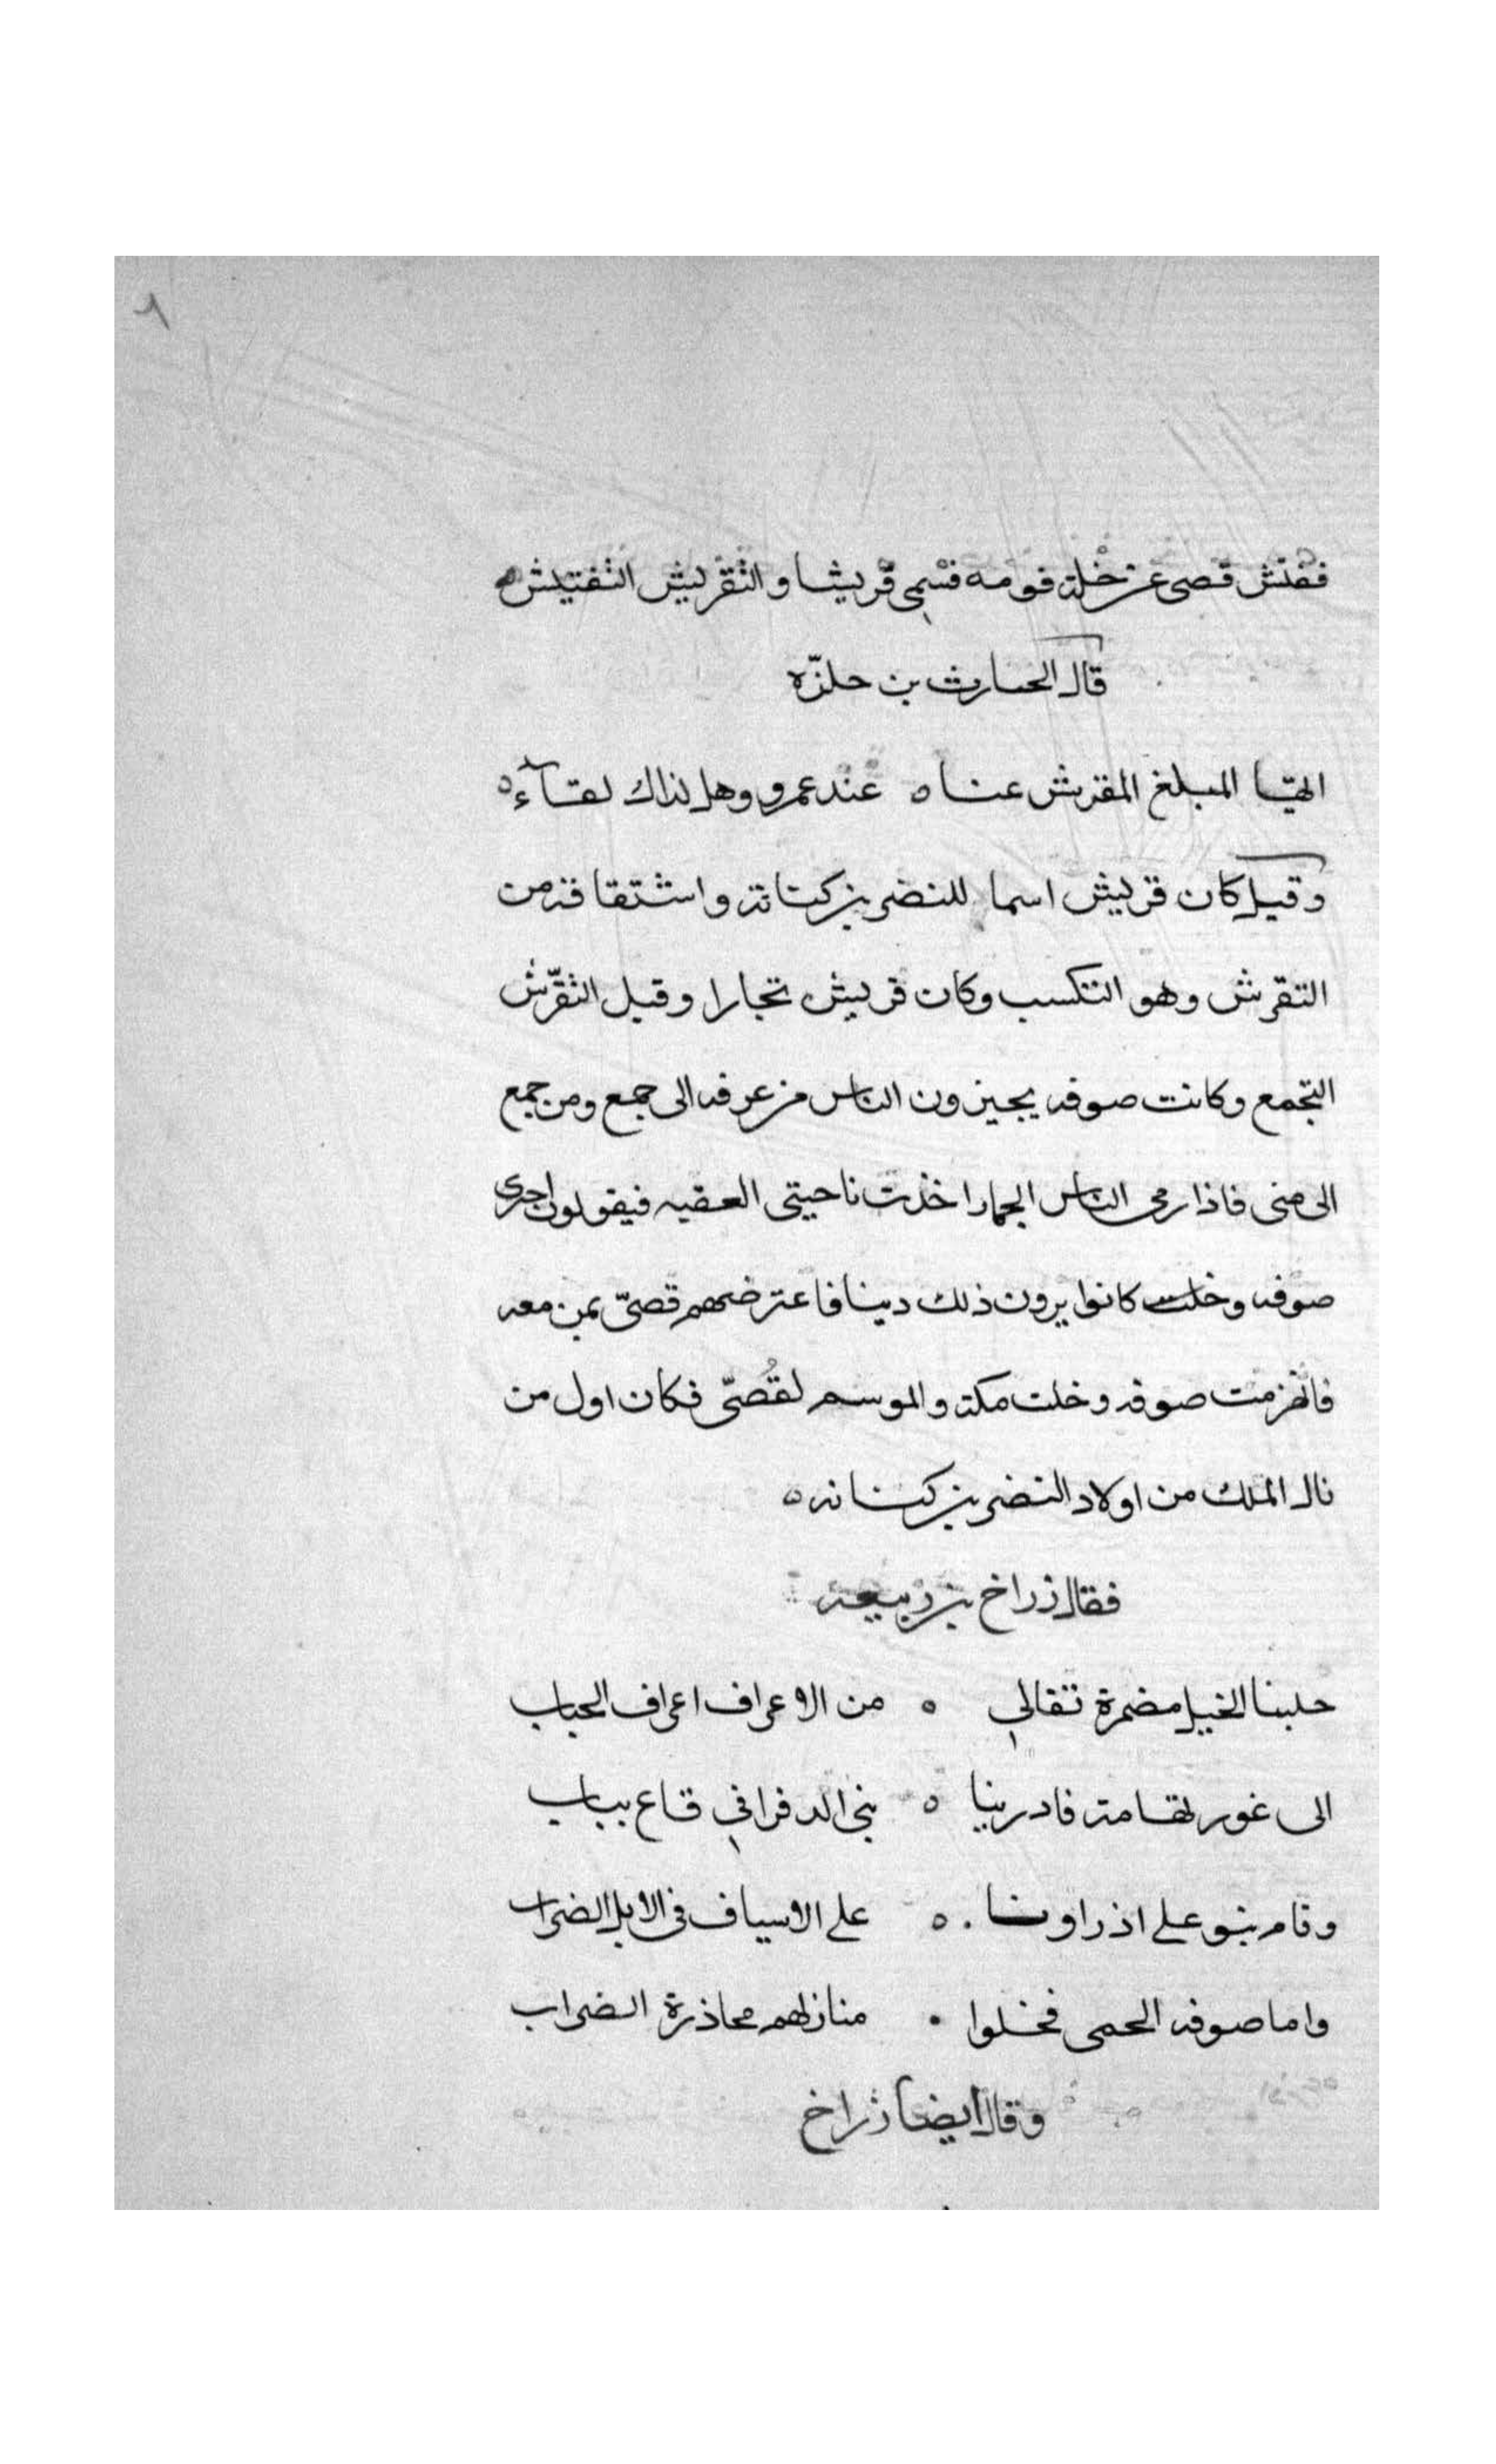 ٨
ففتش قصى عن خلة قومه فسمى قريشا والتقريش التفتيش
قال الحارث بن حلزّه
ايها المبلغ المقرش عنا ه عند عمرو وهل لذاك لقاء ه
وقيل كان قريش اسما للنضر بن كنانة واشتقاقه من
التقرش وهو التكسب وكان قريش تجارا وقيل التقرّش
التجمع وكانت صوفه يجيزون الناس من عرفه الى جمع ومن جمع
الى منى فاذا رمى الناس الجمار اخذت ناحيتى العقبه فيقولون اجرى
صوفه وخلت كانوا يرون ذلك دينا فاعترضهم قصىّ بمن معه
فانهزمت صوفه وخلت مكة والموسم لقُصىّ فكان اول من
نال الملك من اولاد النضر بن كنانه ه
فقال زراخ بن ربيعة
حلبنا الخيل مضمرة تقالى ه من الاعراف اعراف الحباب
الى غور تهامة فادرينا ه بنى الدفرا فى قاع بباب
وقام بنو على اذ راونا ه على الاسياف فى الابل الضراب
واما صوفه الحمى فخلوا • منازلهم محاذرة الضراب
وقال ايضا زراخ